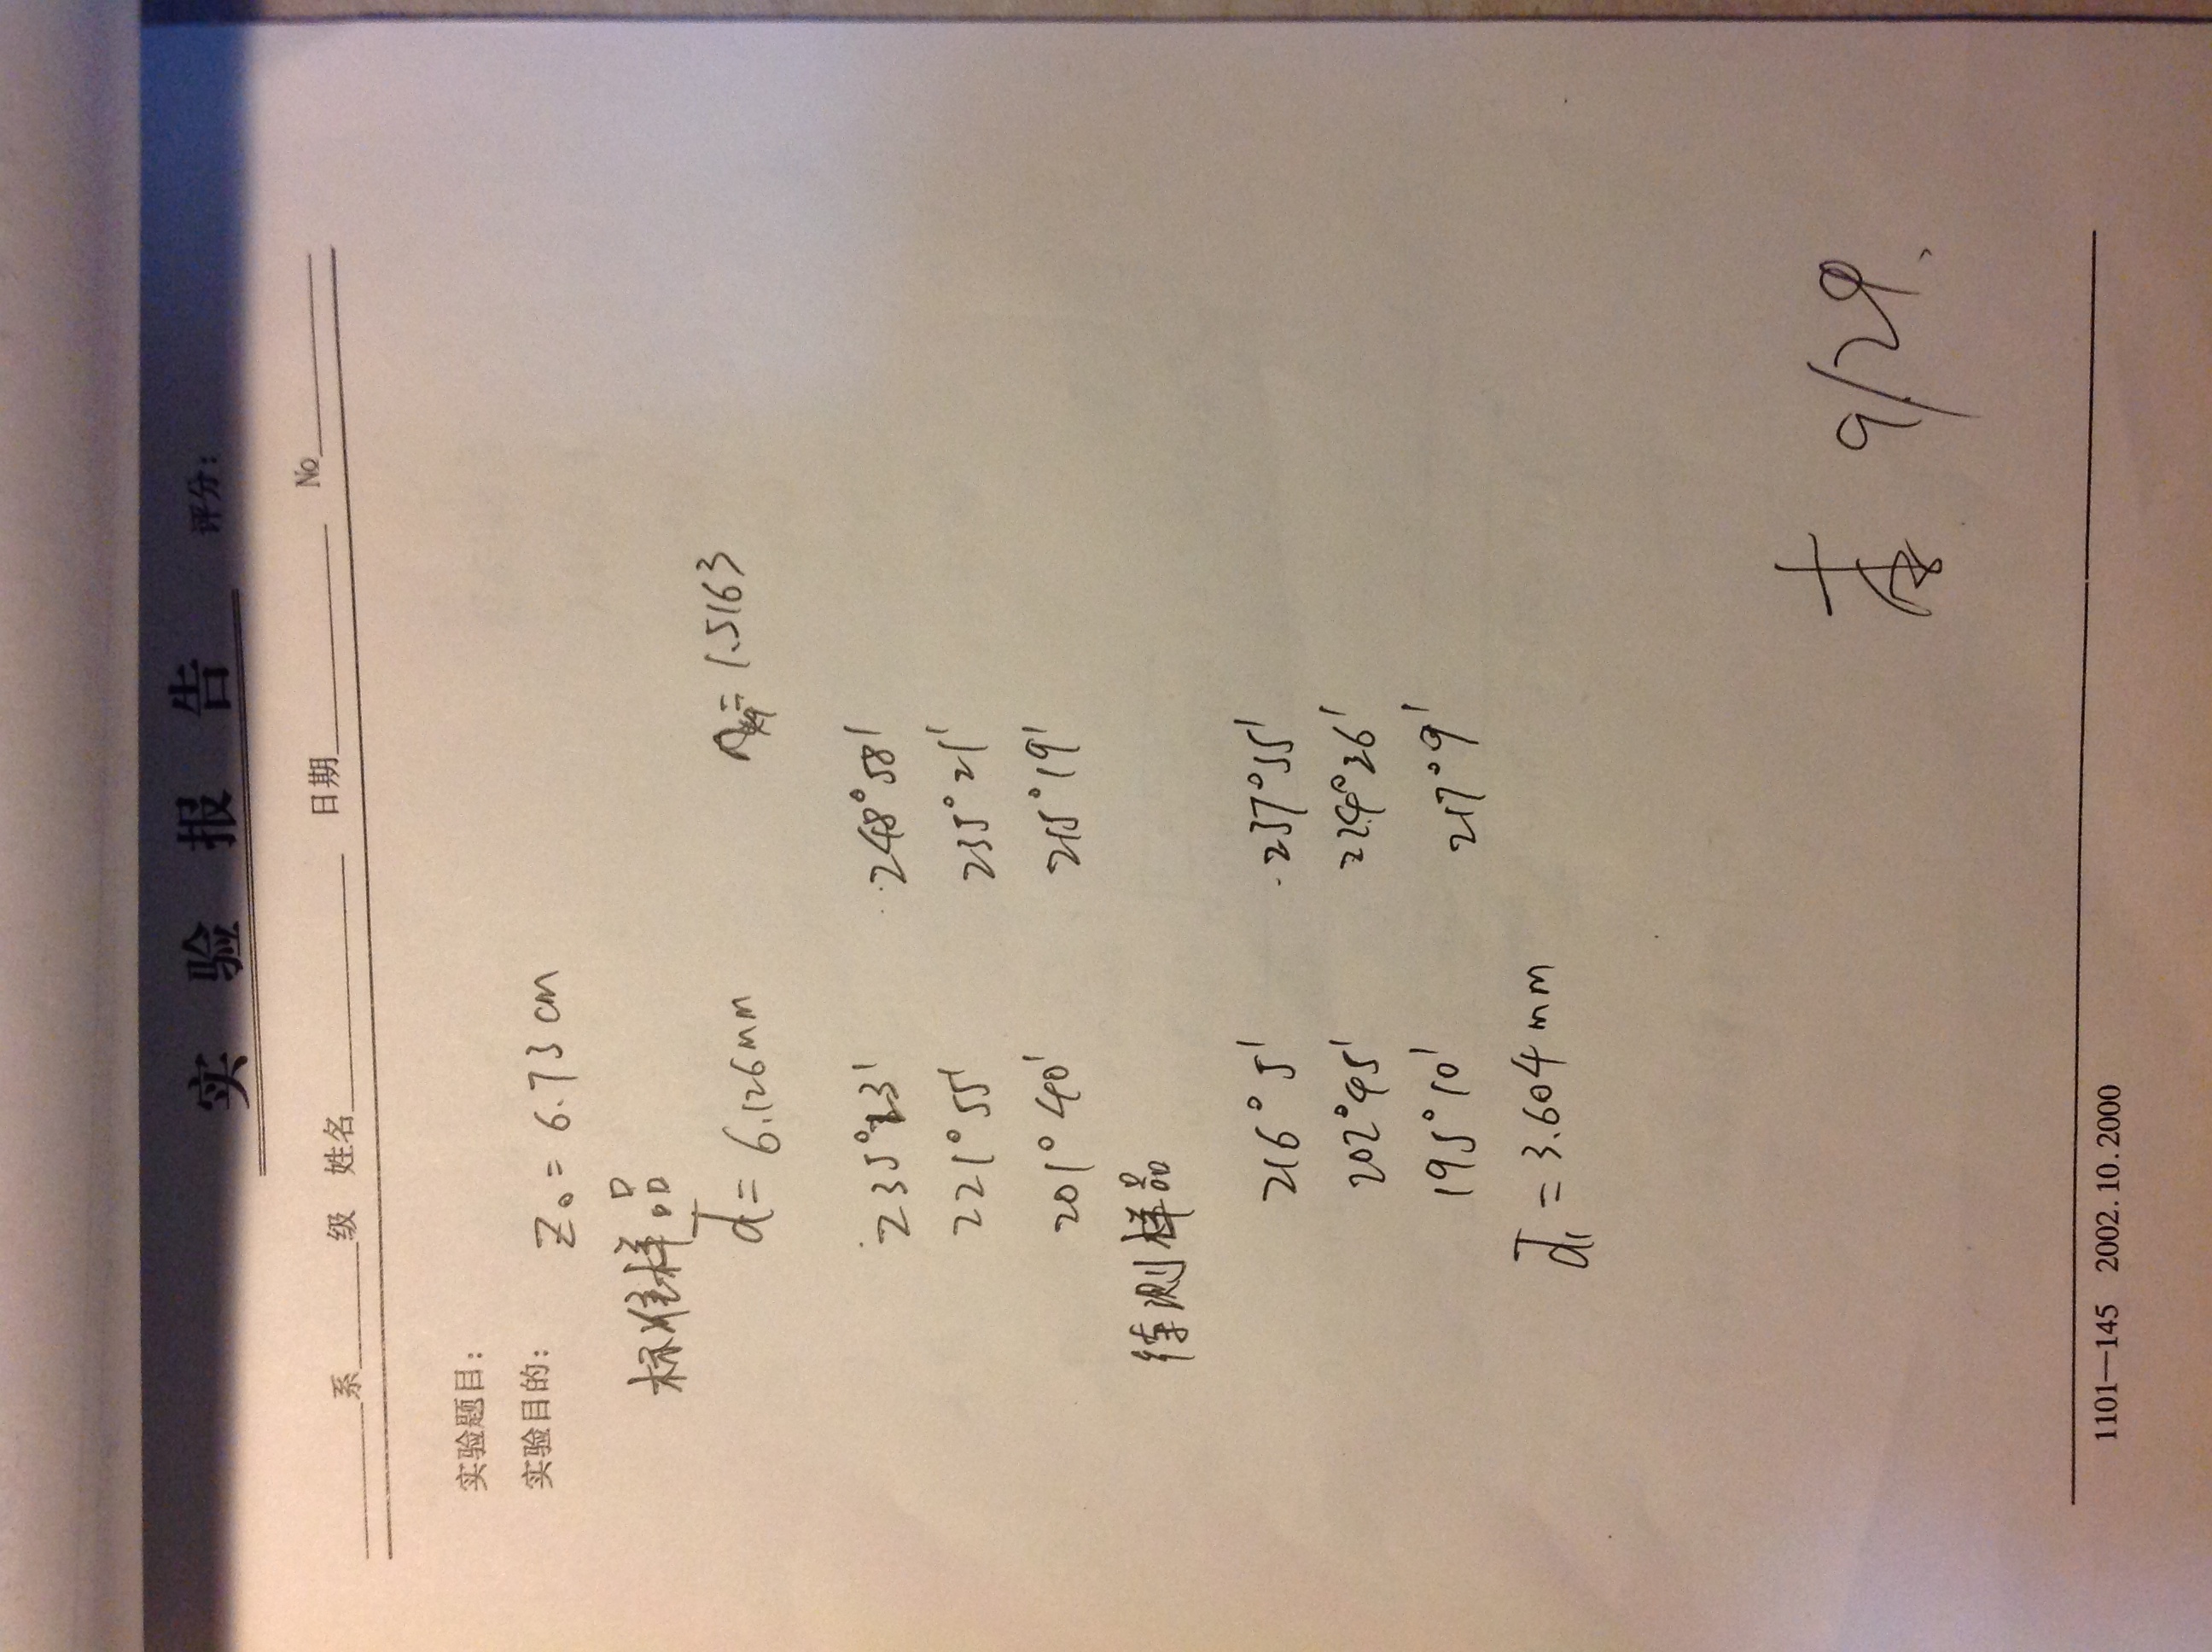 实验报告 评分:
系 级 姓名 日期 No
实验题目:
实验目的:
Z₀ = 6.73 cm
标准样品
d̅ = 6.126mm n = 1.5163
235°23′ 248°58′
221°55′ 235°21′
201°40′ 215°19′
待测样品
216°5′ 237°55′
202°45′ 224°26′
195°10′ 217°9′
d̅₁ = 3.604mm
9/29.
1101—145 2002.10.2000